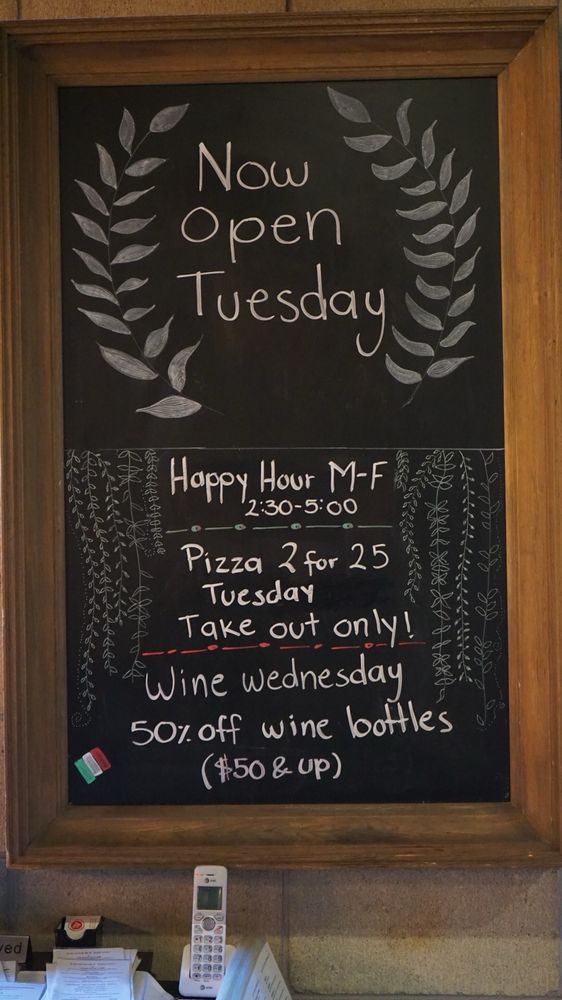 Now
Open
Tuesday
Happy Hour M-F
2:30-5:00
Pizza 2 for 25
Tuesday
Take out only!
Wine wednesday
50% off wine bottles
($50 & up)
at&t
ved